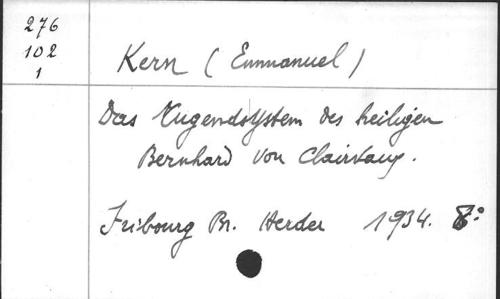 276
102
1
Kern (Emmanuel)
Das Tugendsystem des heiligen
Bernhard von Clairvaux.
Fribourg Br. Herder 1934. 8°